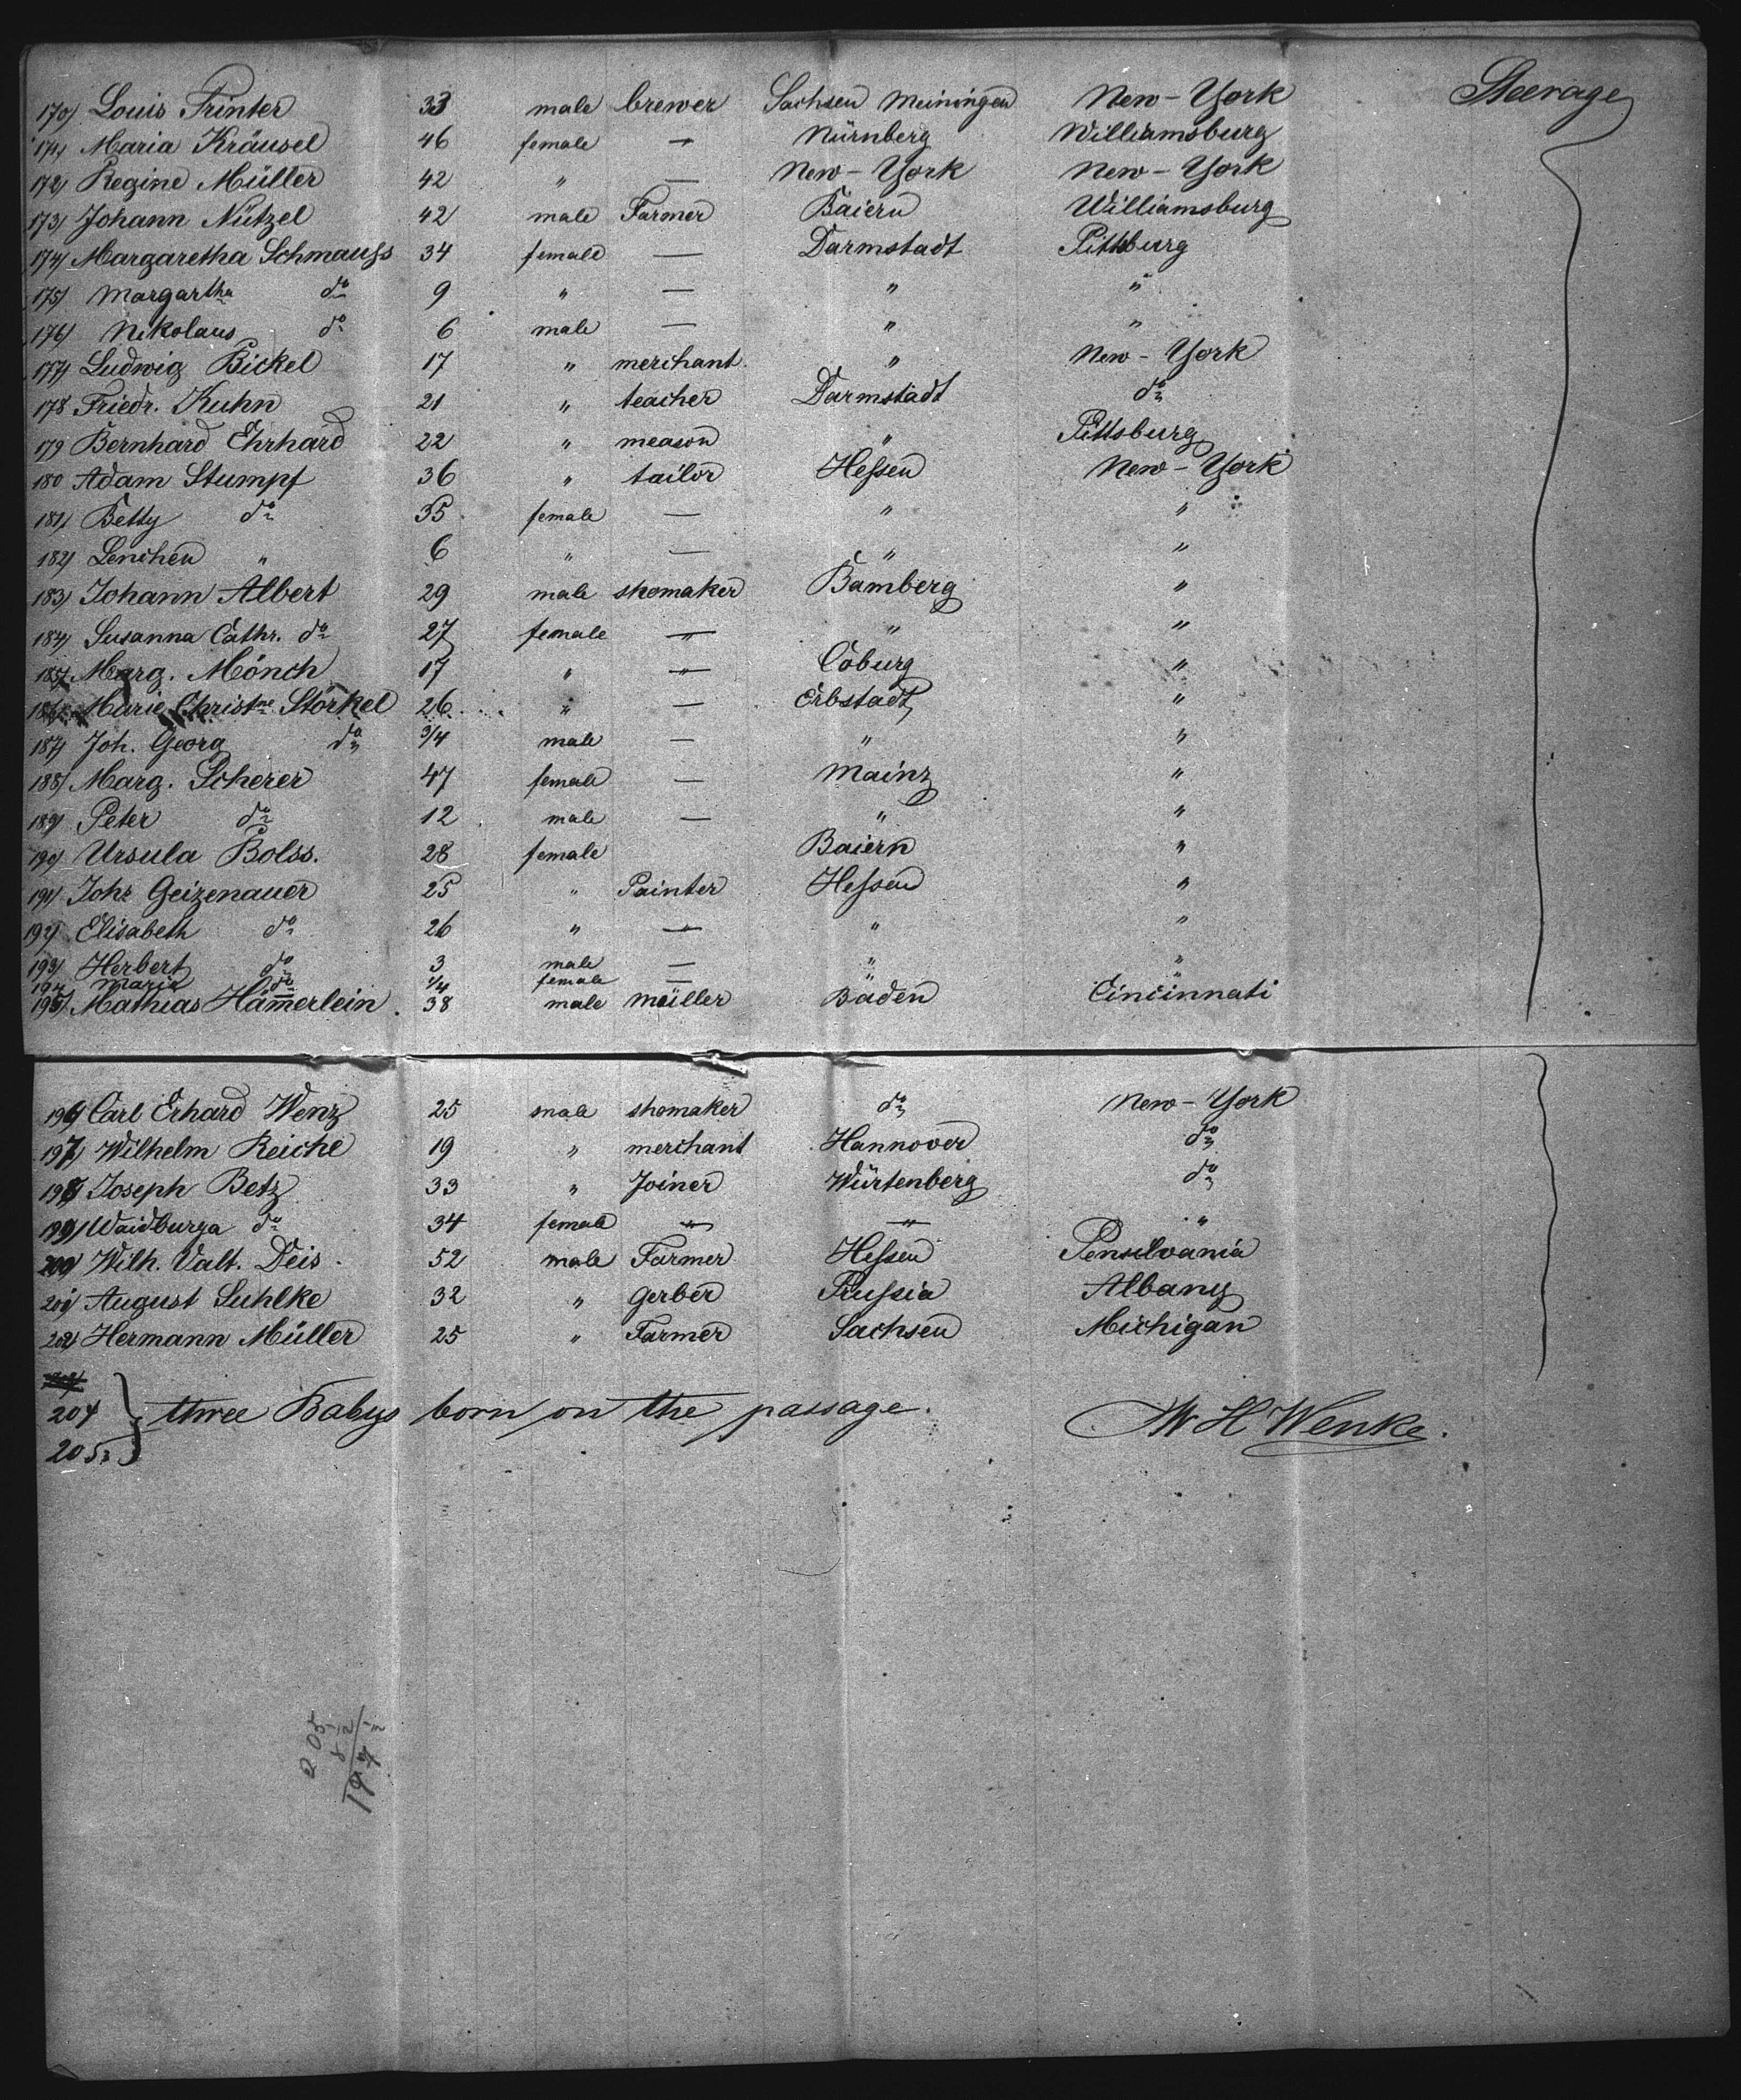 170) Louis Printer 33 male brewer Sachsen Meiningen New-York Steerage
171) Maria Kräusel 46 female — Nürnberg Williamsburg
172) Regine Müller 42 " — New-York New-York
173) Johann Nützel 42 male Farmer Baiern Williamsburg
174) Margaretha Schmauss 34 female — Darmstadt Pittsburg
175) Margartha do 9 " — " "
176) Nikolaus do 6 male — " "
177) Ludwig Bickel 17 " merchant " New-York
178 Friedr. Kuhn 21 " teacher Darmstadt do
179 Bernhard Ehrhard 22 " meason " Pittsburg
180 Adam Stumpf 36 " tailor Hessen New-York
181) Betty do 35 female — " "
182) Lenchen " 6 " — " "
183) Johann Albert 29 male shomaker Bamberg "
184) Susanna Cathr. do 27 female — " "
185) Marg. Mönch 17 " — Coburg "
186) Marie Christne Störkel 26 " — Erbstadt "
187) Joh. Georg do 3/4 male — " "
188) Marg. Scherer 47 female — Mainz "
189) Peter do 12 male — " "
190) Ursula Bolss. 28 female Baiern "
191) Johs Geizenauer 25 " Painter Hessen "
192) Elisabeth do 26 " — " "
193) Herbert do 3 male — " "
194 Maria do 1/4 female — " "
195) Mathias Hammerlein 38 male müller Baden Cincinnati
196) Carl Erhard Wenz 25 male shomaker do New-York
197) Wilhelm Reiche 19 " merchant Hannover do
198) Joseph Betz 33 " Joiner Würtenberg do
199) Waidburga do 34 female — — "
200) Wilh. Valt. Deis 52 male Farmer Hessen Pensilvania
201) August Suhlke 32 " Gerber Prussia Albany
202) Hermann Müller 25 " Farmer Sachsen Michigan
204 } three Babys born on the passage. W H Wenke.
205
205
8
197